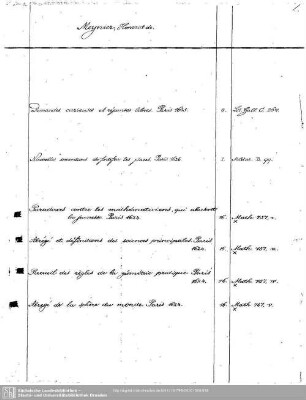 Meynier, Honorat de.
Demandes curieuses et réponses libres. Paris 1635. 8. Lit. Gall. C. 251.
Nouvelles inventions de fortifier les places. Paris 1626 2. Milit. B. 99.
Paradoxes contre les mathématiciens, qui abusent
la jeunesse. Paris 1624. 16. Math. 757, n.
Abrégé et définitions des sciences principales. Paris
1624. 16. Math. 767, n.
Recueil des règles de la géométrie pratique. Paris
1624. 16. Math. 767, n.
Abrégé de la sphère du monde. Paris 1624. 16. Math. 767, n.
Sächsische Landesbibliothek -
Staats- und Universitätsbibliothek Dresden